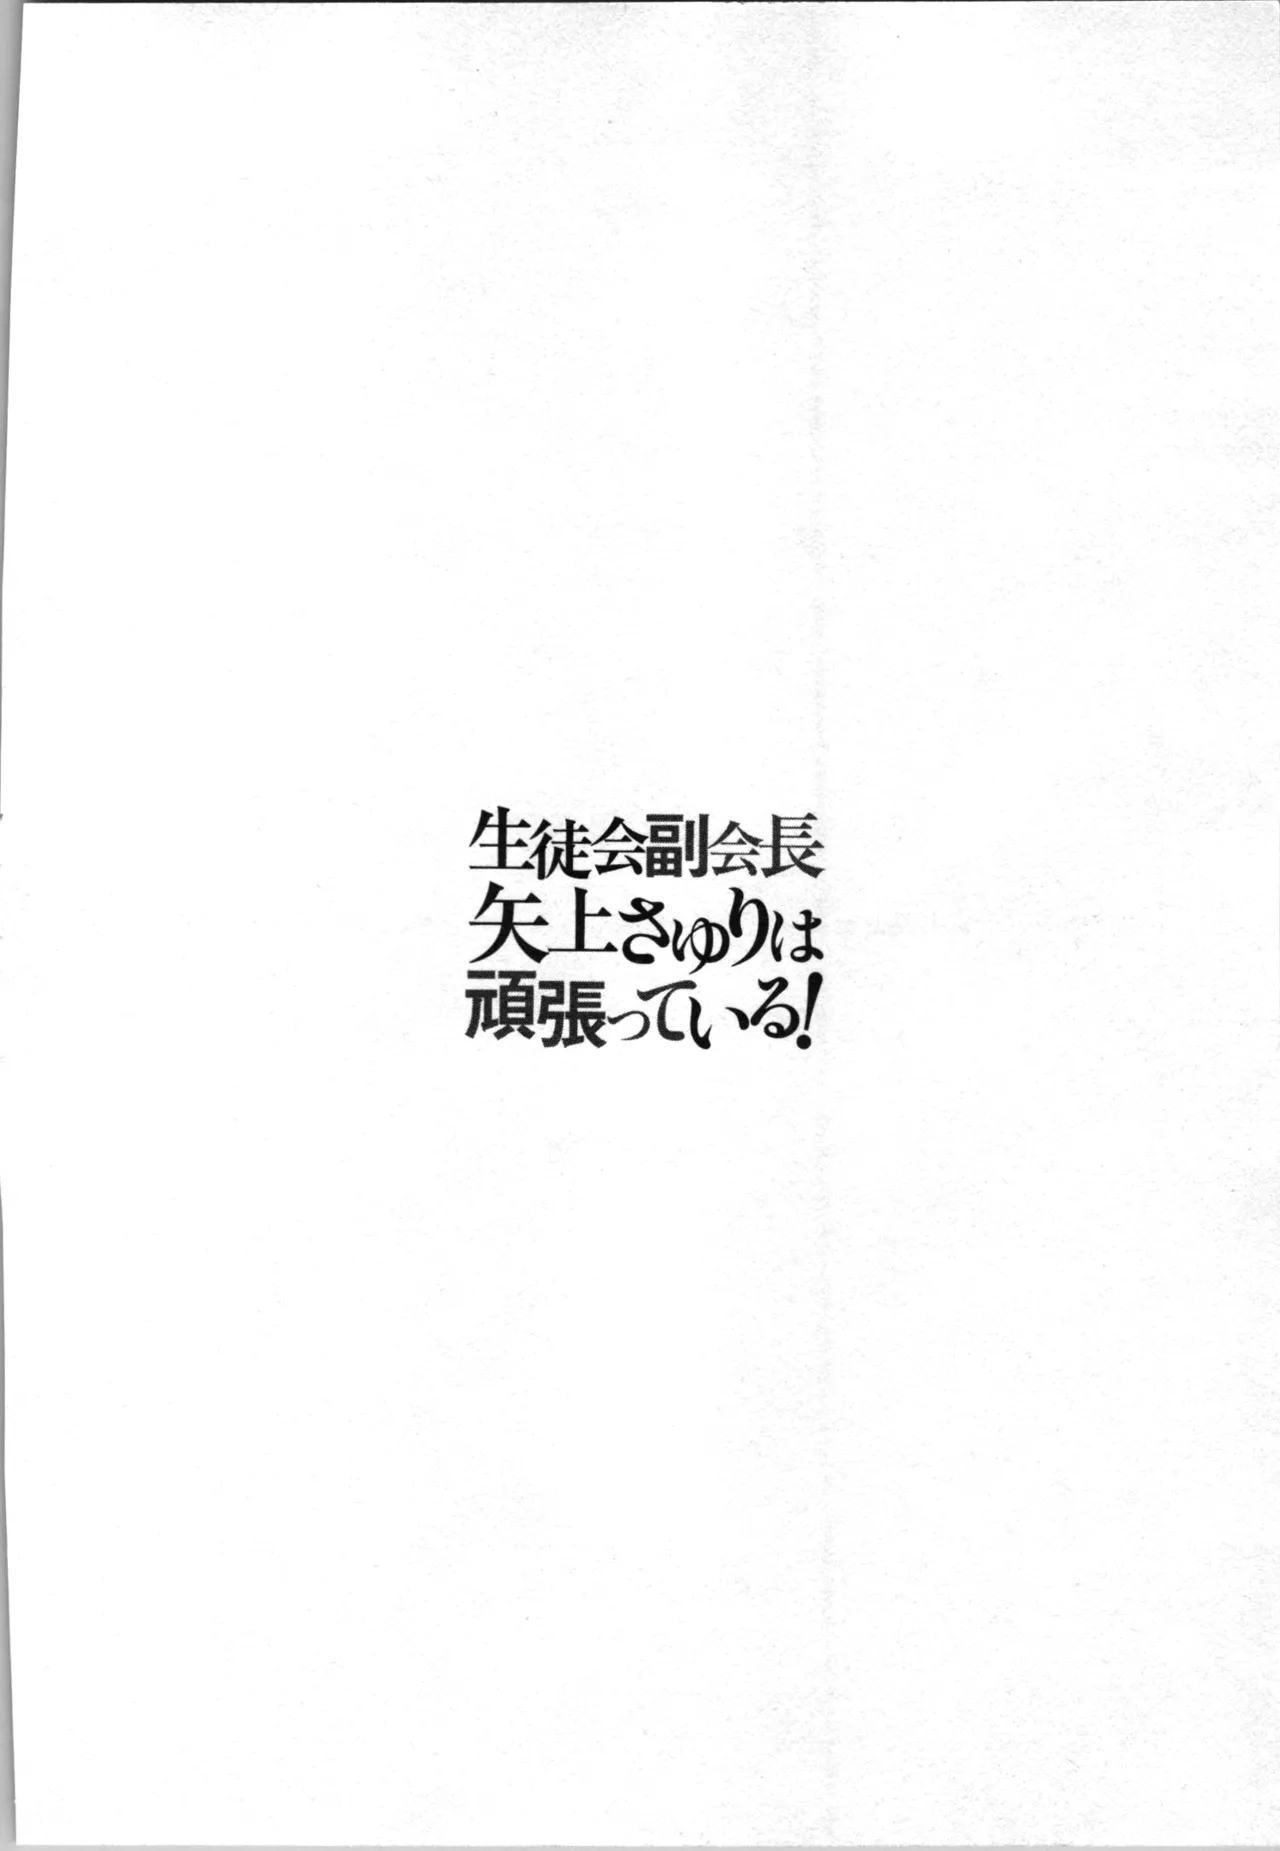 生徒会副会長
矢上さゆりは
頑張っている!